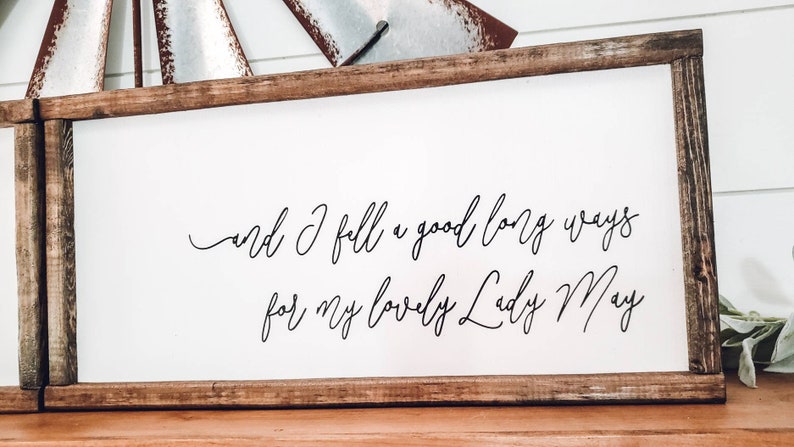 and I fell a good long ways
for my lovely Lady May